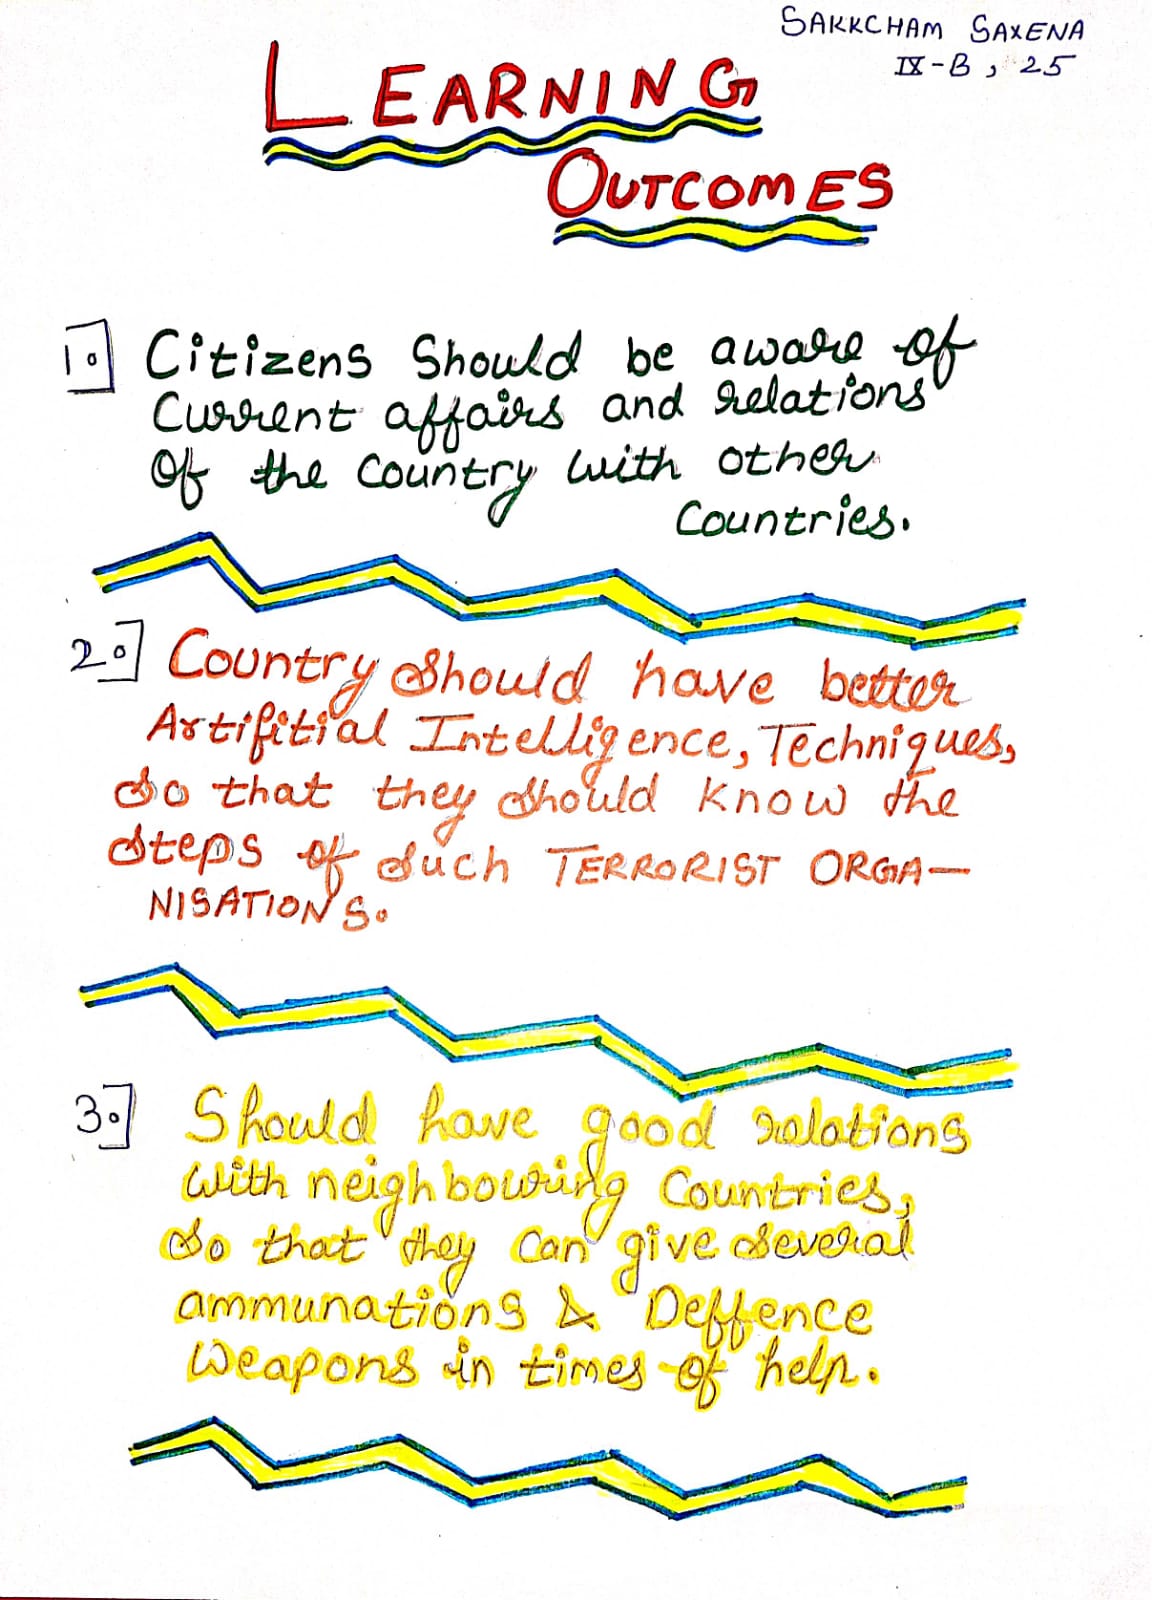 SAKKCHAM SAXENA
IX-B, 25
LEARNING
OUTCOMES
1.] Citizens Should be aware of
Current affairs and relations
Of the Country with other
Countries.
2.] Country Should have better
Artifitial Intelligence, Techniques,
So that they should know the
steps of such TERRORIST ORGA-
NISATIONS.
3.] Should have good relations
with neighbouring Countries,
So that they can give several
ammunations & Deffence
Weapons in times of help.